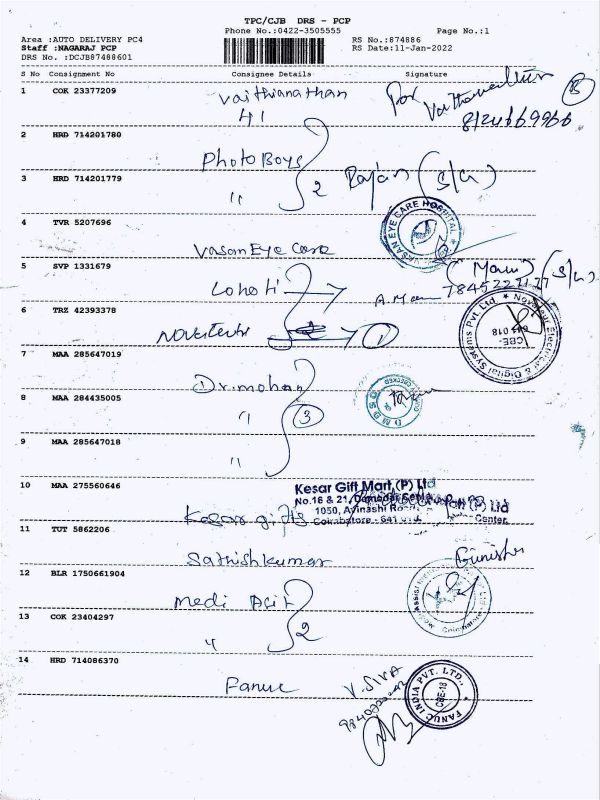 TPC/CJB DRS - PCP
Phone No.:0422-3505555 Page No.:1
Area :AUTO DELIVERY PC4 RS No.:874886
Staff :NAGARAJ PCP RS Date:11-Jan-2022
DRS No. :DCJB87488601
S No Consignment No Consignee Details Signature
1 COK 23377209
Vaithianathan
41
For Vaithianathan
B
2 HRD 714201780
Photo Boys
3 HRD 714201779
" 2 Rajan (S/G)
4 TVR 5207696
Vasan Eye Care
VASAN EYE CARE HOSPITAL
5 SVP 1331679
Lohoti
(Mani) (S/G)
A. Mani
6 TRZ 42393378
1
Novateur Electrical & Digital Systems Pvt. Ltd.
CBE-
641 018
7 MAA 285647019
Dr. mohan
8 MAA 284435005
" 3
DMDSC
9 MAA 285647018
"
10 MAA 275560646
Kesar gifts
Kesar Gift Mart (P) Ltd
No.18 & 21, Damodar Centre
1050, Avinashi Road
Coimbatore - 641 018
11 TUT 5862206
Sathishkumar
12 BLR 1750661904
Medi Asist
Coimbatore
13 COK 23404297
" 2
14 HRD 714086370
Fanuc
V. SIVA
FANUC INDIA PVT. LTD.,
CBE-18